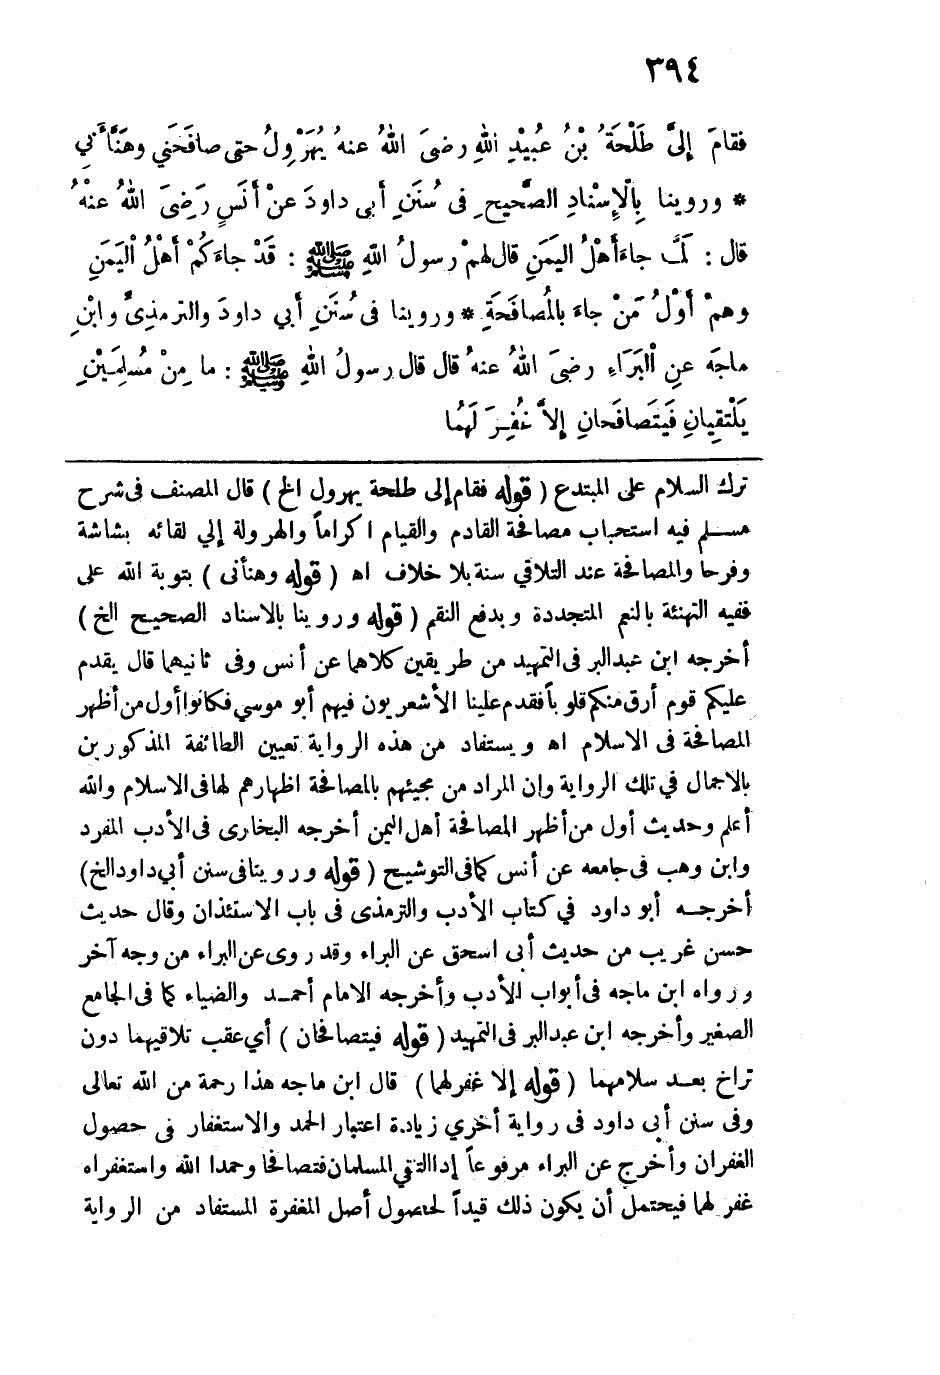 ٣٩٤
فقامَ إلىَّ طَلْحَةُ بْنُ عُبيْدِ اللهِ رضىَ اللهُ عنهُ يُهَرْوِلُ حتى صافَحَني وهَنَّأَني
* وروينا بِالْإِسْنادِ الصَّحيحِ فى سُنَنِ أبى داودَ عنْ أنَسٍ رَضِىَ اللهُ عنْهُ
قال : لمَّا جاءَ أَهْلُ اليَمَنِ قال لهمْ رسولُ اللهِ ﷺ : قَدْ جاءَكُمْ أهْلُ الْيَمَنِ
وهمْ أوّلُ مَنْ جاءَ بالْمُصافَحَةِ * وروينا فى سُنَنِ أبي داودَ والترمذىِّ وابْنِ
ماجَه عنِ الْبَرَاءِ رضىَ اللهُ عنهُ قال قال رسولُ اللهِ ﷺ : ما مِنْ مُسْلِمَيْنِ
يَلْتَقِيانِ فَيَتَصافَحانِ إلاَّ غُفِرَ لَهُما
ترك السلام على المبتدع ( قوله فقام إلى طلحة يهرول الخ ) قال المصنف فى شرح
مسلم فيه استحباب مصافحة القادم والقيام اكراماً والهرولة إلي لقائه بشاشة
وفرحا والمصافحة عند التلاقي سنة بلا خلاف اه ( قوله وهنأنى ) بتوبة الله على
ففيه التهنئة بالنعم المتجددة وبدفع النقم ( قوله وروينا بالاسناد الصحيح الخ )
أخرجه ابن عبدالبر فى التمهيد من طريقين كلاهما عن أنس وفى ثانيهما قال يقدم
عليكم قوم أرق منكم قلوباً فقدم علينا الأشعريون فيهم أبو موسي فكانوا أول من أظهر
المصافحة فى الاسلام اه ويستفاد من هذه الرواية تعيين الطائفة المذكورين
بالاجمال في تلك الرواية وإن المراد من مجيئهم بالمصافحة اظهارهم لها فى الاسلام والله
أعلم وحديث أول من أظهر المصافحة أهل اليمن أخرجه البخارى فى الأدب المفرد
وابن وهب فى جامعه عن أنس كما فى التوشيح ( قوله وروينا فى سنن أبي داود الخ)
أخرجه أبو داود في كتاب الأدب والترمذى فى باب الاستئذان وقال حديث
حسن غريب من حديث أبى اسحق عن البراء وقد روى عن البراء من وجه آخر
ورواه ابن ماجه فى أبواب الأدب وأخرجه الامام أحمد والضياء كما فى الجامع
الصغير وأخرجه ابن عبدالبر فى التمهيد ( قوله فيتصافحان ) أي عقب تلاقيهما دون
تراخ بعد سلامهما ( قوله إلا غفر لهما ) قال ابن ماجه هذا رحمة من الله تعالى
وفى سنن أبى داود فى رواية أخري زيادة اعتبار الحمد والاستغفار فى حصول
الغفران وأخرج عن البراء مرفوعاً إدا التقي المسلمان فتصافحا وحمدا الله واستغفراه
غفر لهما فيحتمل أن يكون ذلك قيداً لحصول أصل المغفرة المستفاد من الرواية